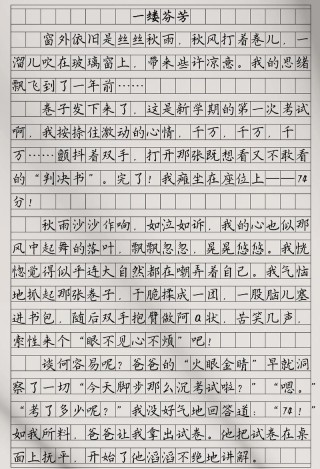 一缕芬芳
窗外依旧是丝丝秋雨，秋风打着卷儿，一
溜儿吹在玻璃窗上，带来些许凉意。我的思绪
飘飞到了一年前……
卷子发下来了，这是新学期的第一次考试
啊，我按捺住激动的心情，千万，千万，千
万……颤抖着双手，打开那张既想看又不敢看
的“判决书”。完了！我瘫坐在座位上——74
分！
秋雨沙沙作响，如泣如诉，我的心也似那
风中起舞的落叶，飘飘忽忽，晃晃悠悠。我恍
惚觉得似乎连大自然都在嘲弄着自己。我气恼
地抓起那张卷子，干脆揉成一团，一股脑儿塞
进书包，随后双手抱臂做阿Q状，苦笑几声，
索性来个“眼不见心不烦”吧！
谈何容易呢？爸爸的“火眼金睛”早就洞
察了一切“今天脚步那么沉考试啦？”“嗯。”
“考了多少呢？”我没好气地回答道：“74！”
如我所料，爸爸让我拿出试卷。他把试卷在桌
面上抚平，开始了他滔滔不绝地讲解。